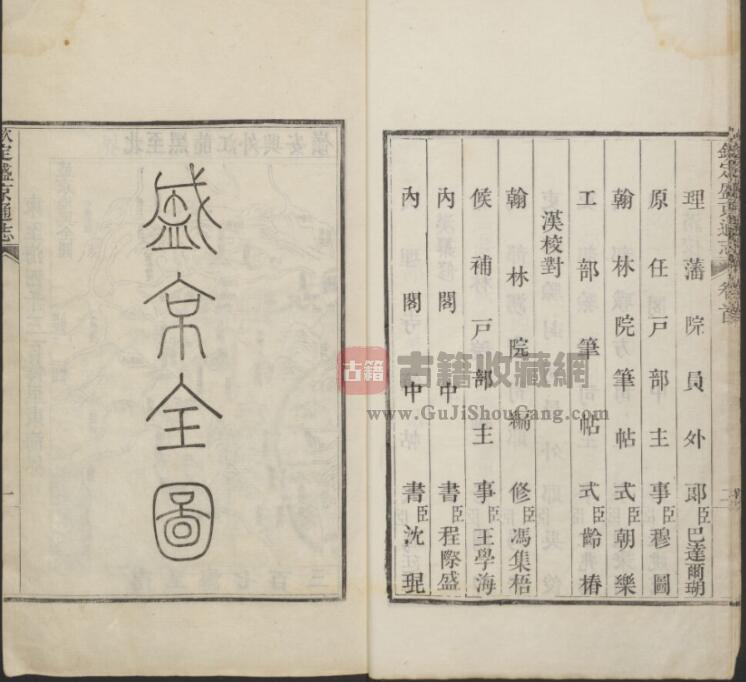 欽定盛京通志 卷首
理藩院員外郎臣巴達爾瑚
原任戶部主事臣穆圖
翰林院筆帖式臣朝樂
工部筆帖式臣齡椿
漢校對
翰林院編修臣馮集梧
候補戶部主事臣王學海
內閣中書臣程際盛
內閣中書臣沈琨
盛京全圖
欽定盛京通志
一
古籍 古籍收藏網
www.GuJiShouCang.com